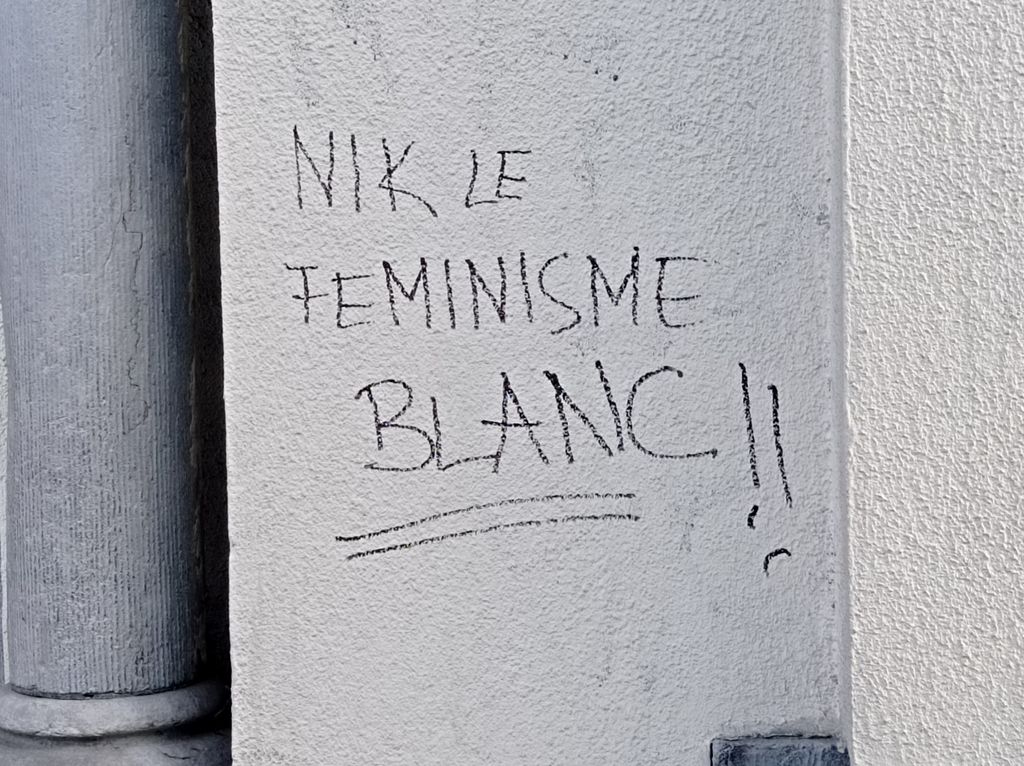 NIK LE
FEMINISME
BLANC !!